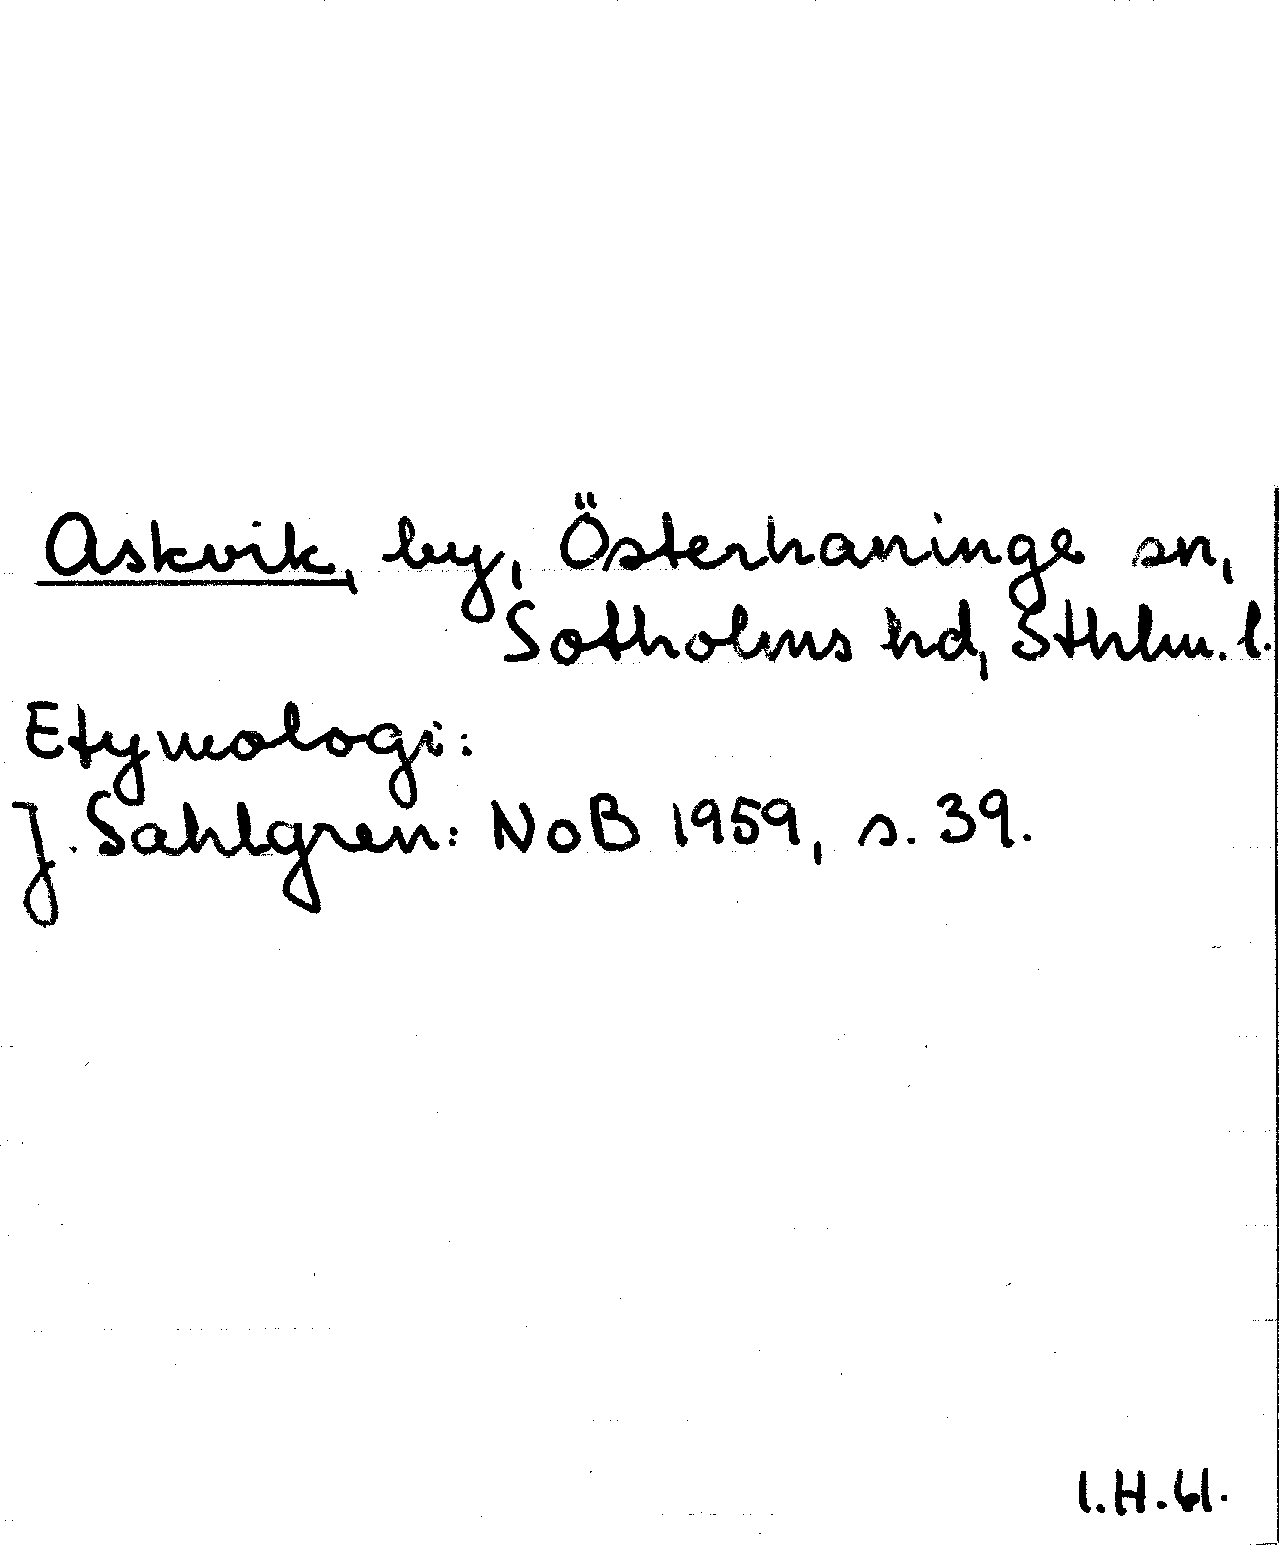 Askvik, by, Österhaninge sn,
Sotholms hd, Sthlm. l.
Etymologi:
J. Sahlgren: NoB 1959, s. 39.
I.H.61.